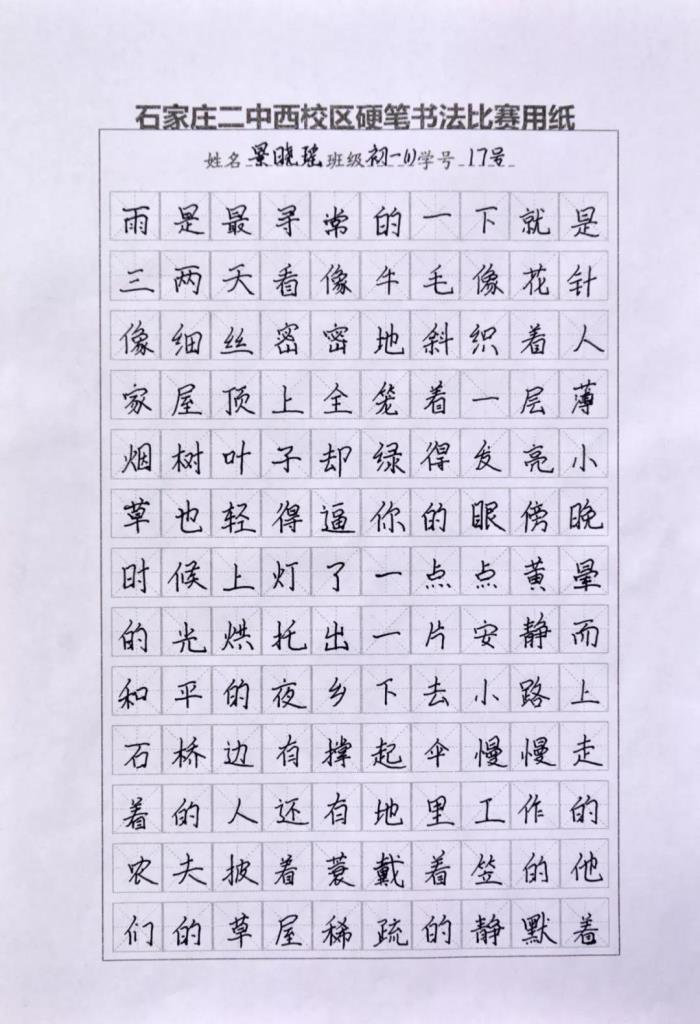 石家庄二中西校区硬笔书法比赛用纸
姓名 景晓瑶 班级 初一(1) 学号 17号
雨是最寻常的一下就是
三两天看像牛毛像花针
像细丝密密地斜织着人
家屋顶上全笼着一层薄
烟树叶子却绿得发亮小
草也轻得逼你的眼傍晚
时候上灯了一点点黄晕
的光烘托出一片安静而
和平的夜乡下去小路上
石桥边有撑起伞慢慢走
着的人还有地里工作的
农夫披着蓑戴着笠的他
们的草屋稀疏的静默着